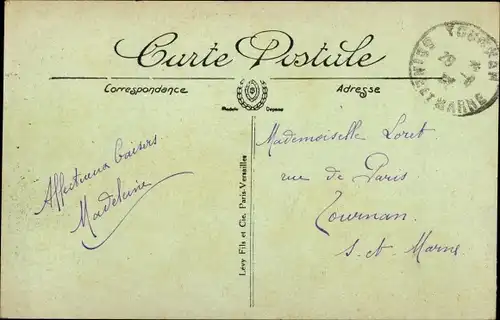 Carte Postale
Correspondance
Adresse
Modèle Déposé
TOURNAN
SEINE ET MARNE
Mademoiselle Loret
rue de Paris
Tournan
S. et Marne
Affectueux baisers
Madeleine
Lévy Fils et Cie, Paris-Versailles